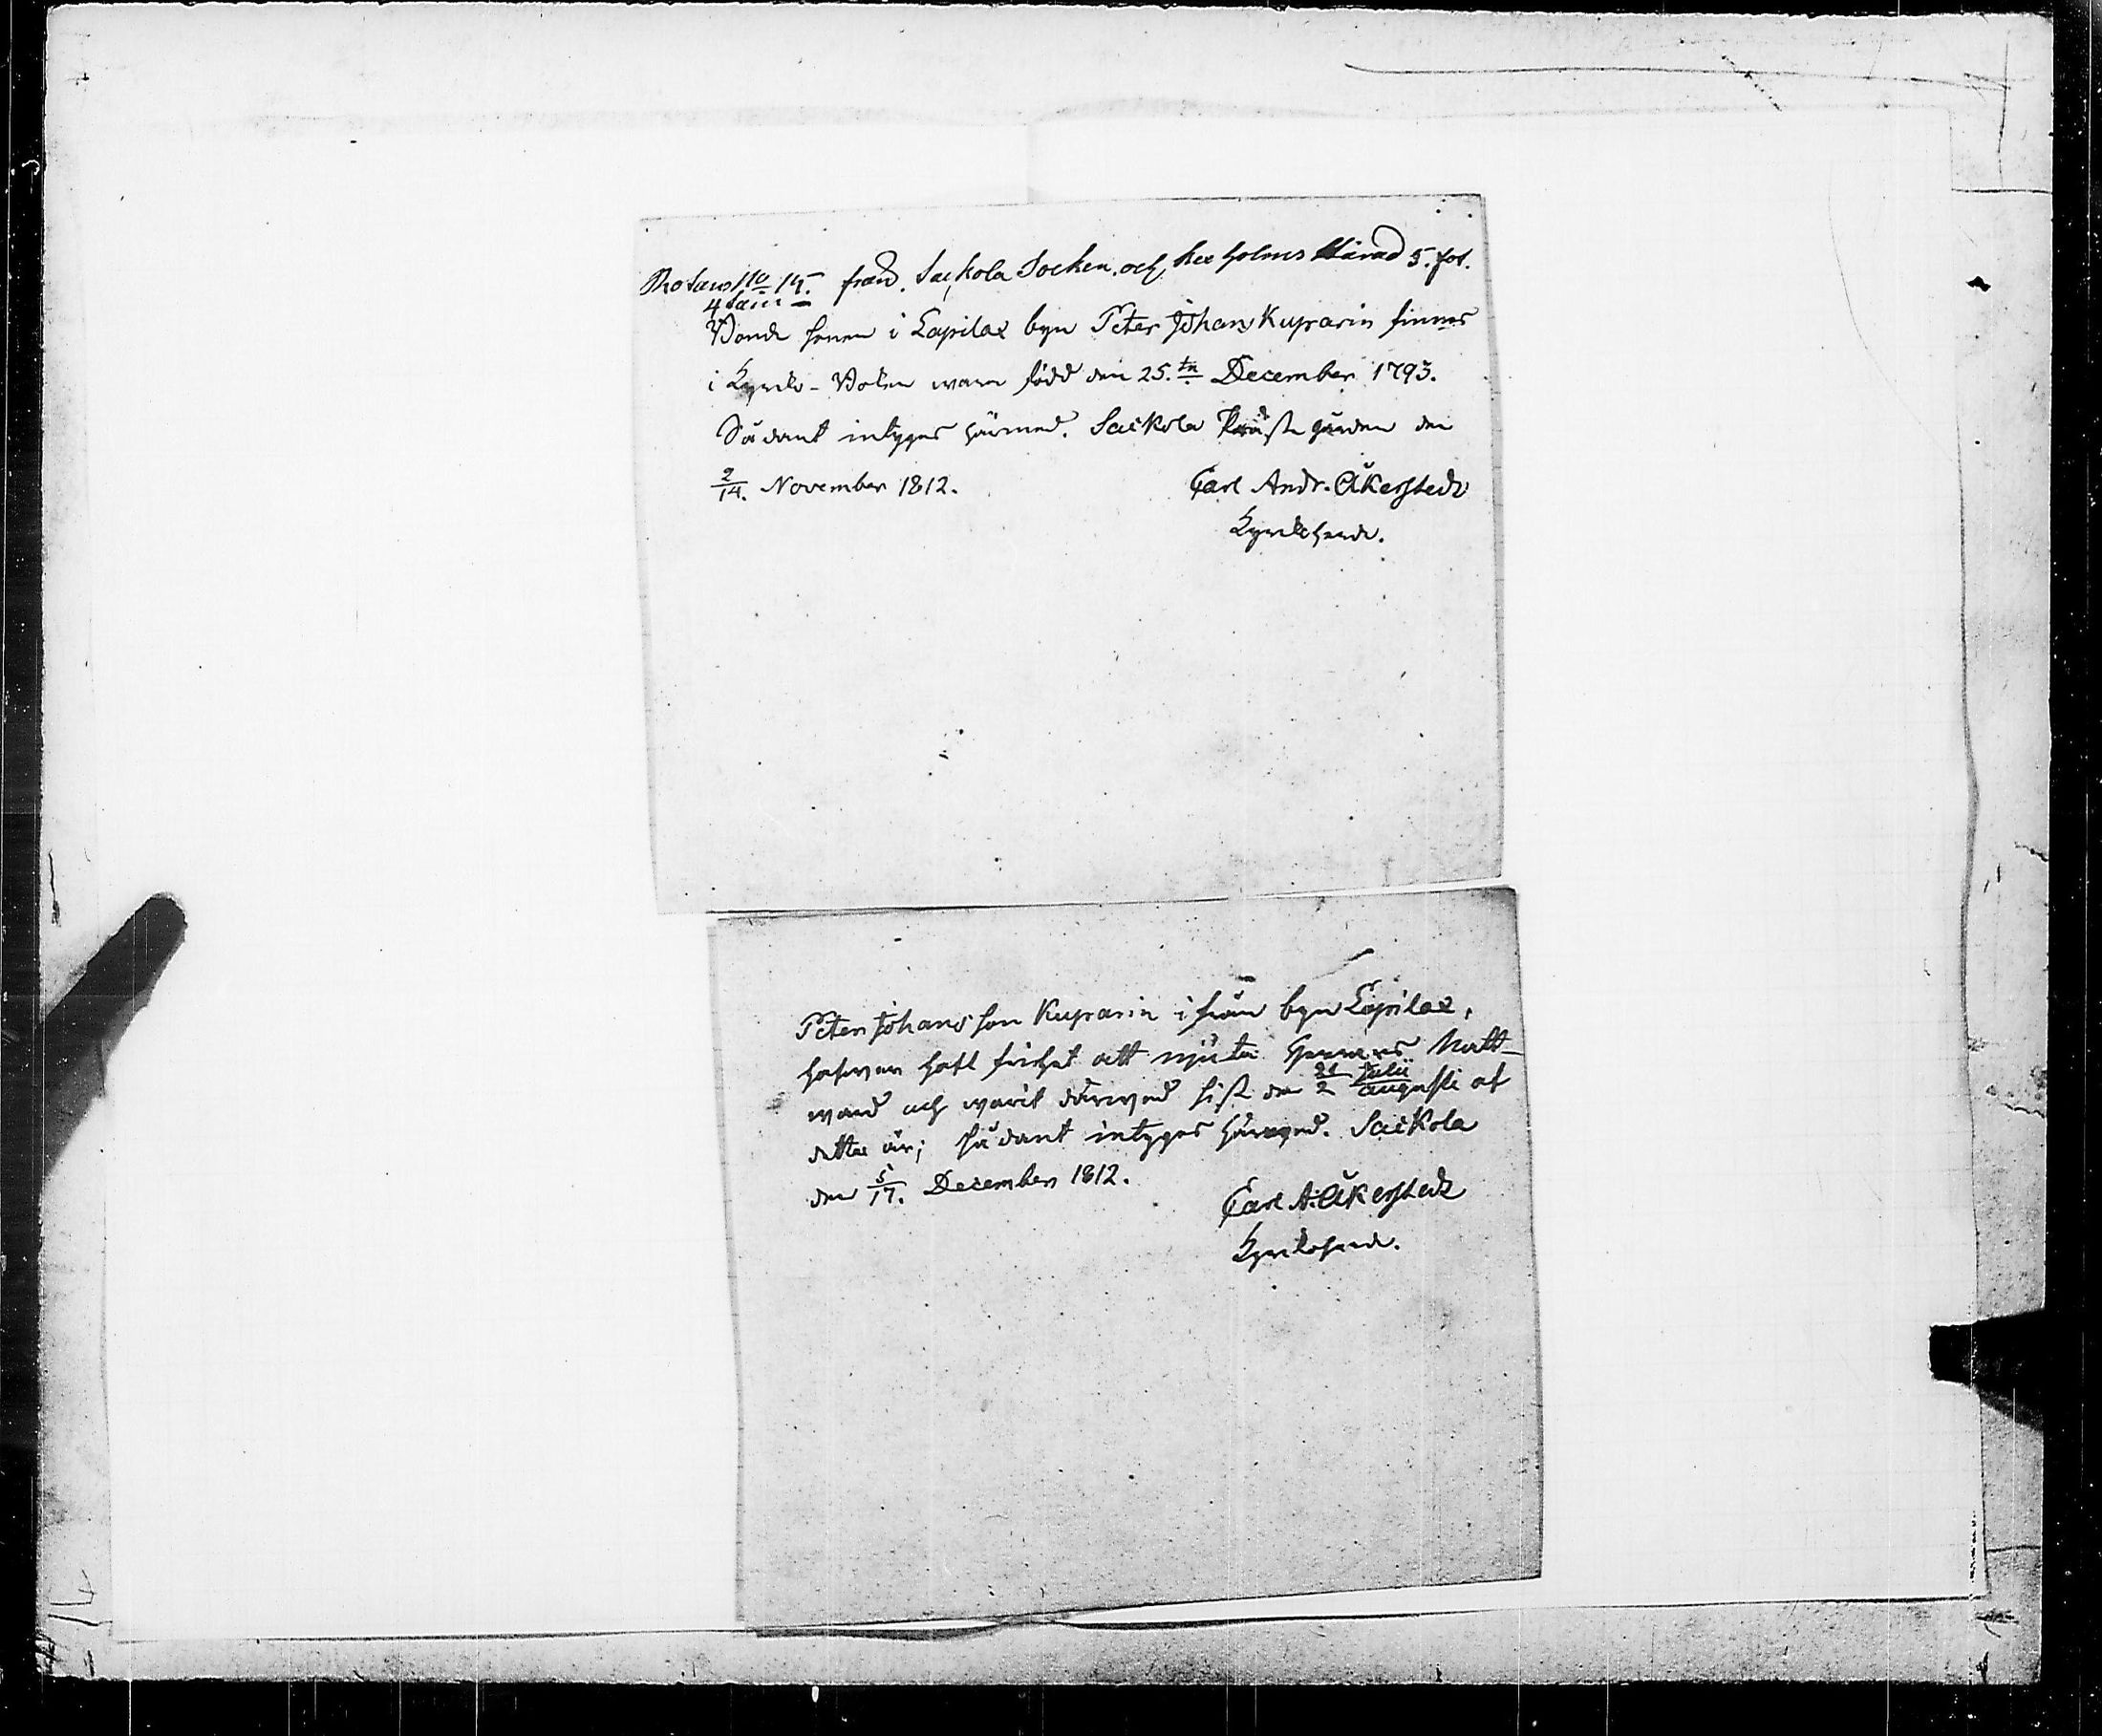 Rotans No 15. från Sackola Socken och Kexholms Härad 5. fot.
4 tum
Bonde sonen i Lapilax byn Peter Johans Kuparin finnes
i Kyrcko-Boken wara född den 25.tn December 1793.
Sådant intyges härmed. Saikola Prästegården den
2/14. November 1812. Carl Andr. Åkerstedt
Kyrckoherde.
Peter Johansson Kuparin ifrån byn Lapilax,
hafwer haft frihet att njuta Herrans Natt-
ward och warit därwid sist den 21/2 Julii/augusti af
detta år; Sådant intyges härmed. Saikola
den 5/17. December 1812.
Carl A. Åkerstedt
Kyrckoherde.